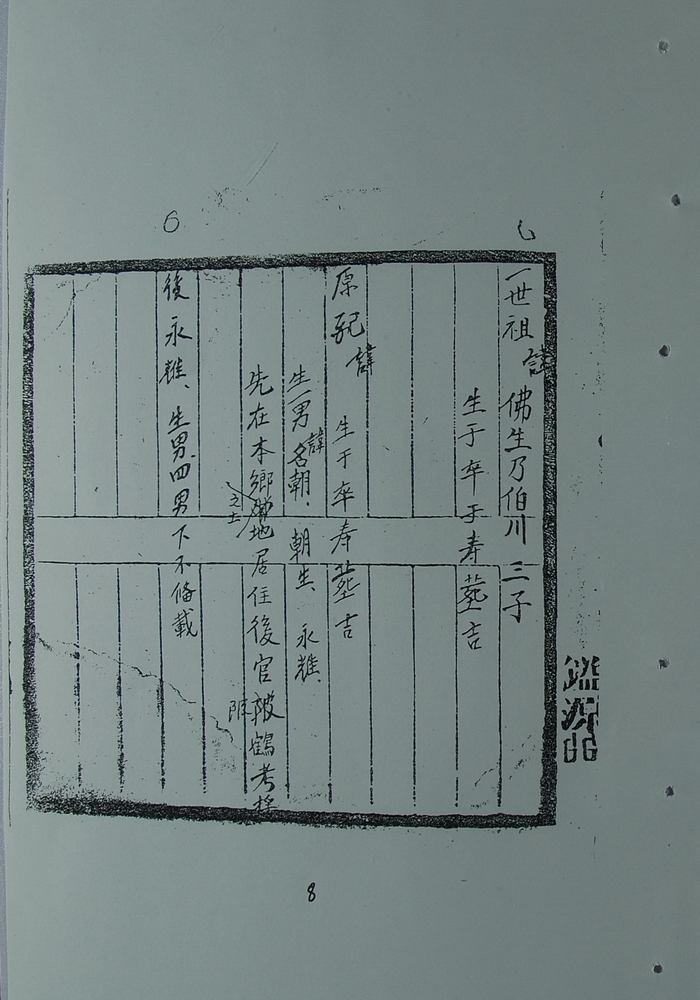 一世祖諱佛生乃伯川三子
生于卒于寿葬吉
原配諱
生于卒寿葬吉
生一男諱名朝、朝生、永樵、
先在本鄉地居住後官陂鶴考
之土
後永樵、生男、四男下不俻載
6
8